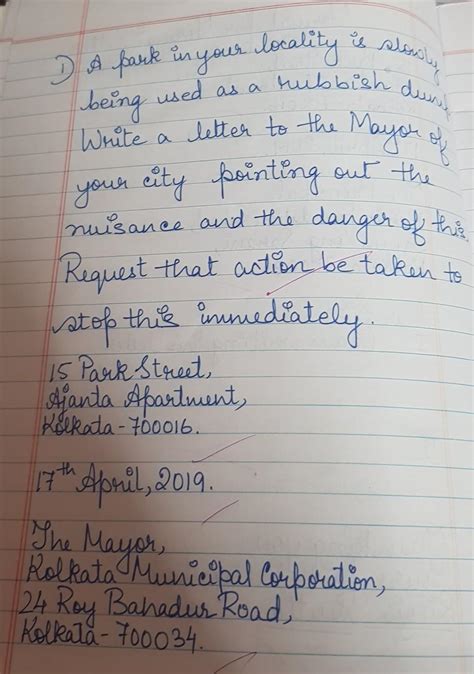 1) A park in your locality is slowly
being used as a rubbish dump
Write a letter to the Mayor of
your city pointing out the
nuisance and the danger of this.
Request that action be taken to
stop this immediately.
15 Park Street,
Ajanta Apartment,
Kolkata-700016.
17th April, 2019.
The Mayor,
Kolkata Municipal Corporation,
24 Roy Bahadur Road,
Kolkata-700034.